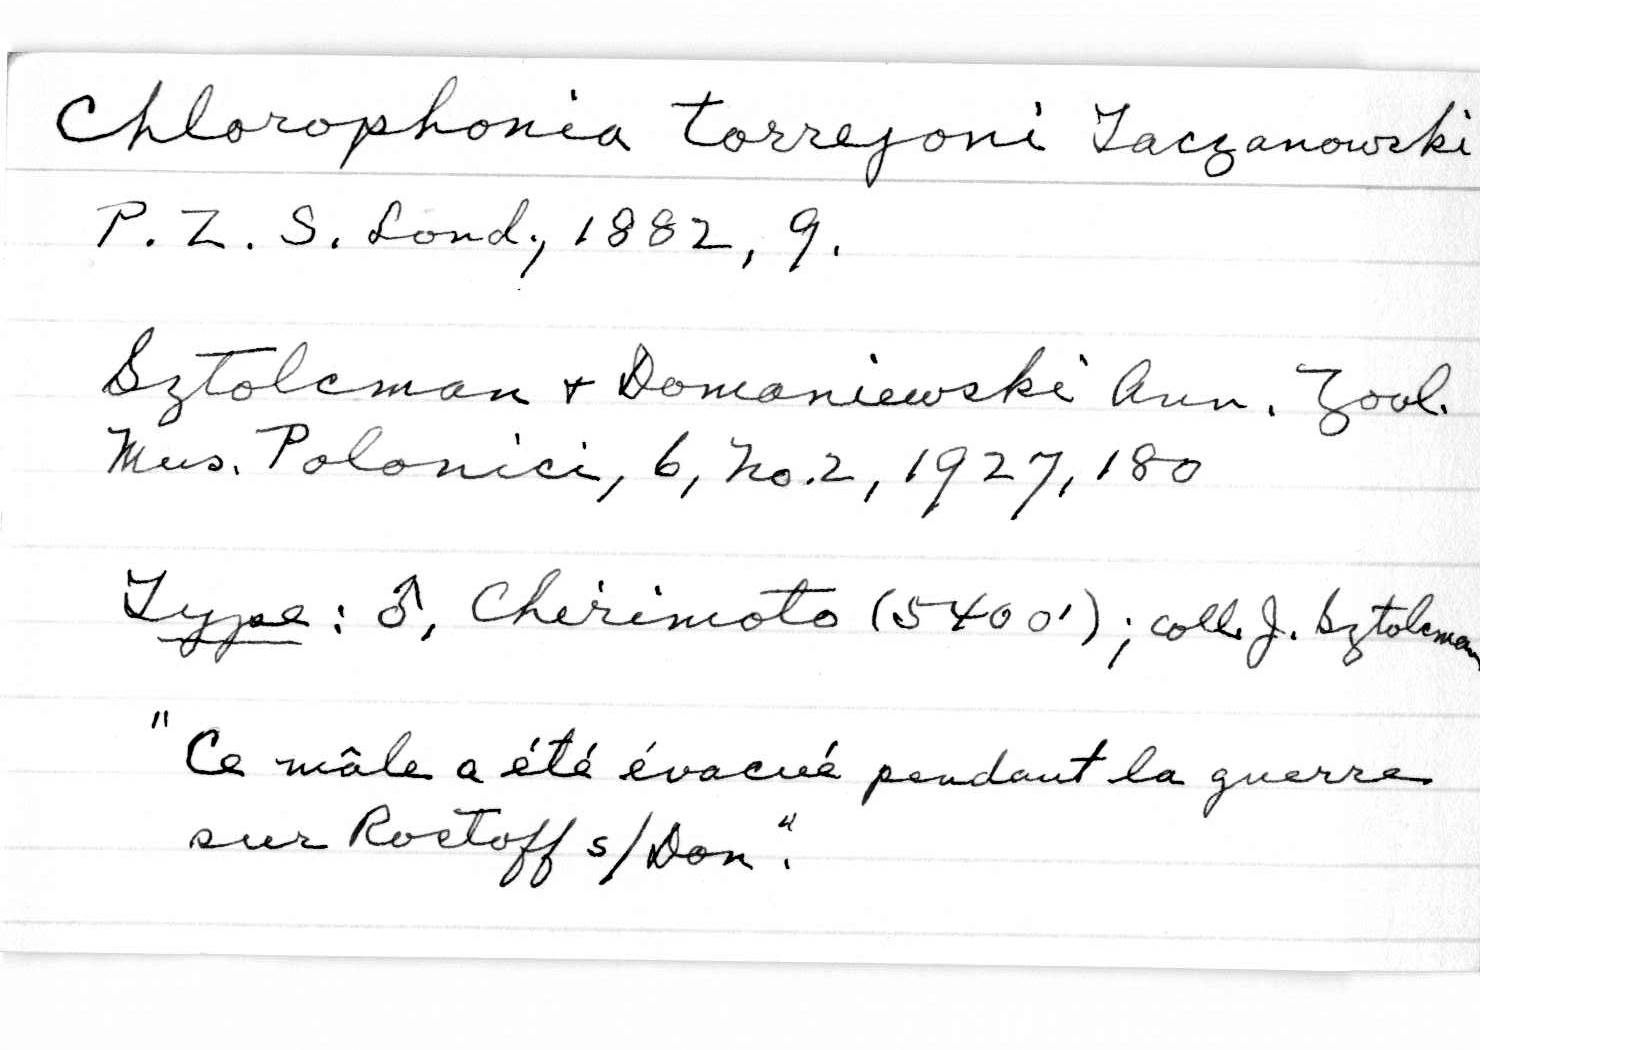 Chlorophonia torrejoni Taczanowski
P. Z. S. Lond., 1882, 9.
Sztolcman + Domaniewski Ann. Zool.
Mus. Polonici, 6, No. 2, 1927, 180
Type: ♂, Chirimoto (5400'); coll. J. Sztolcman
"Ce mâle a été évacué pendant la guerre
sur Rostoff s/Don".